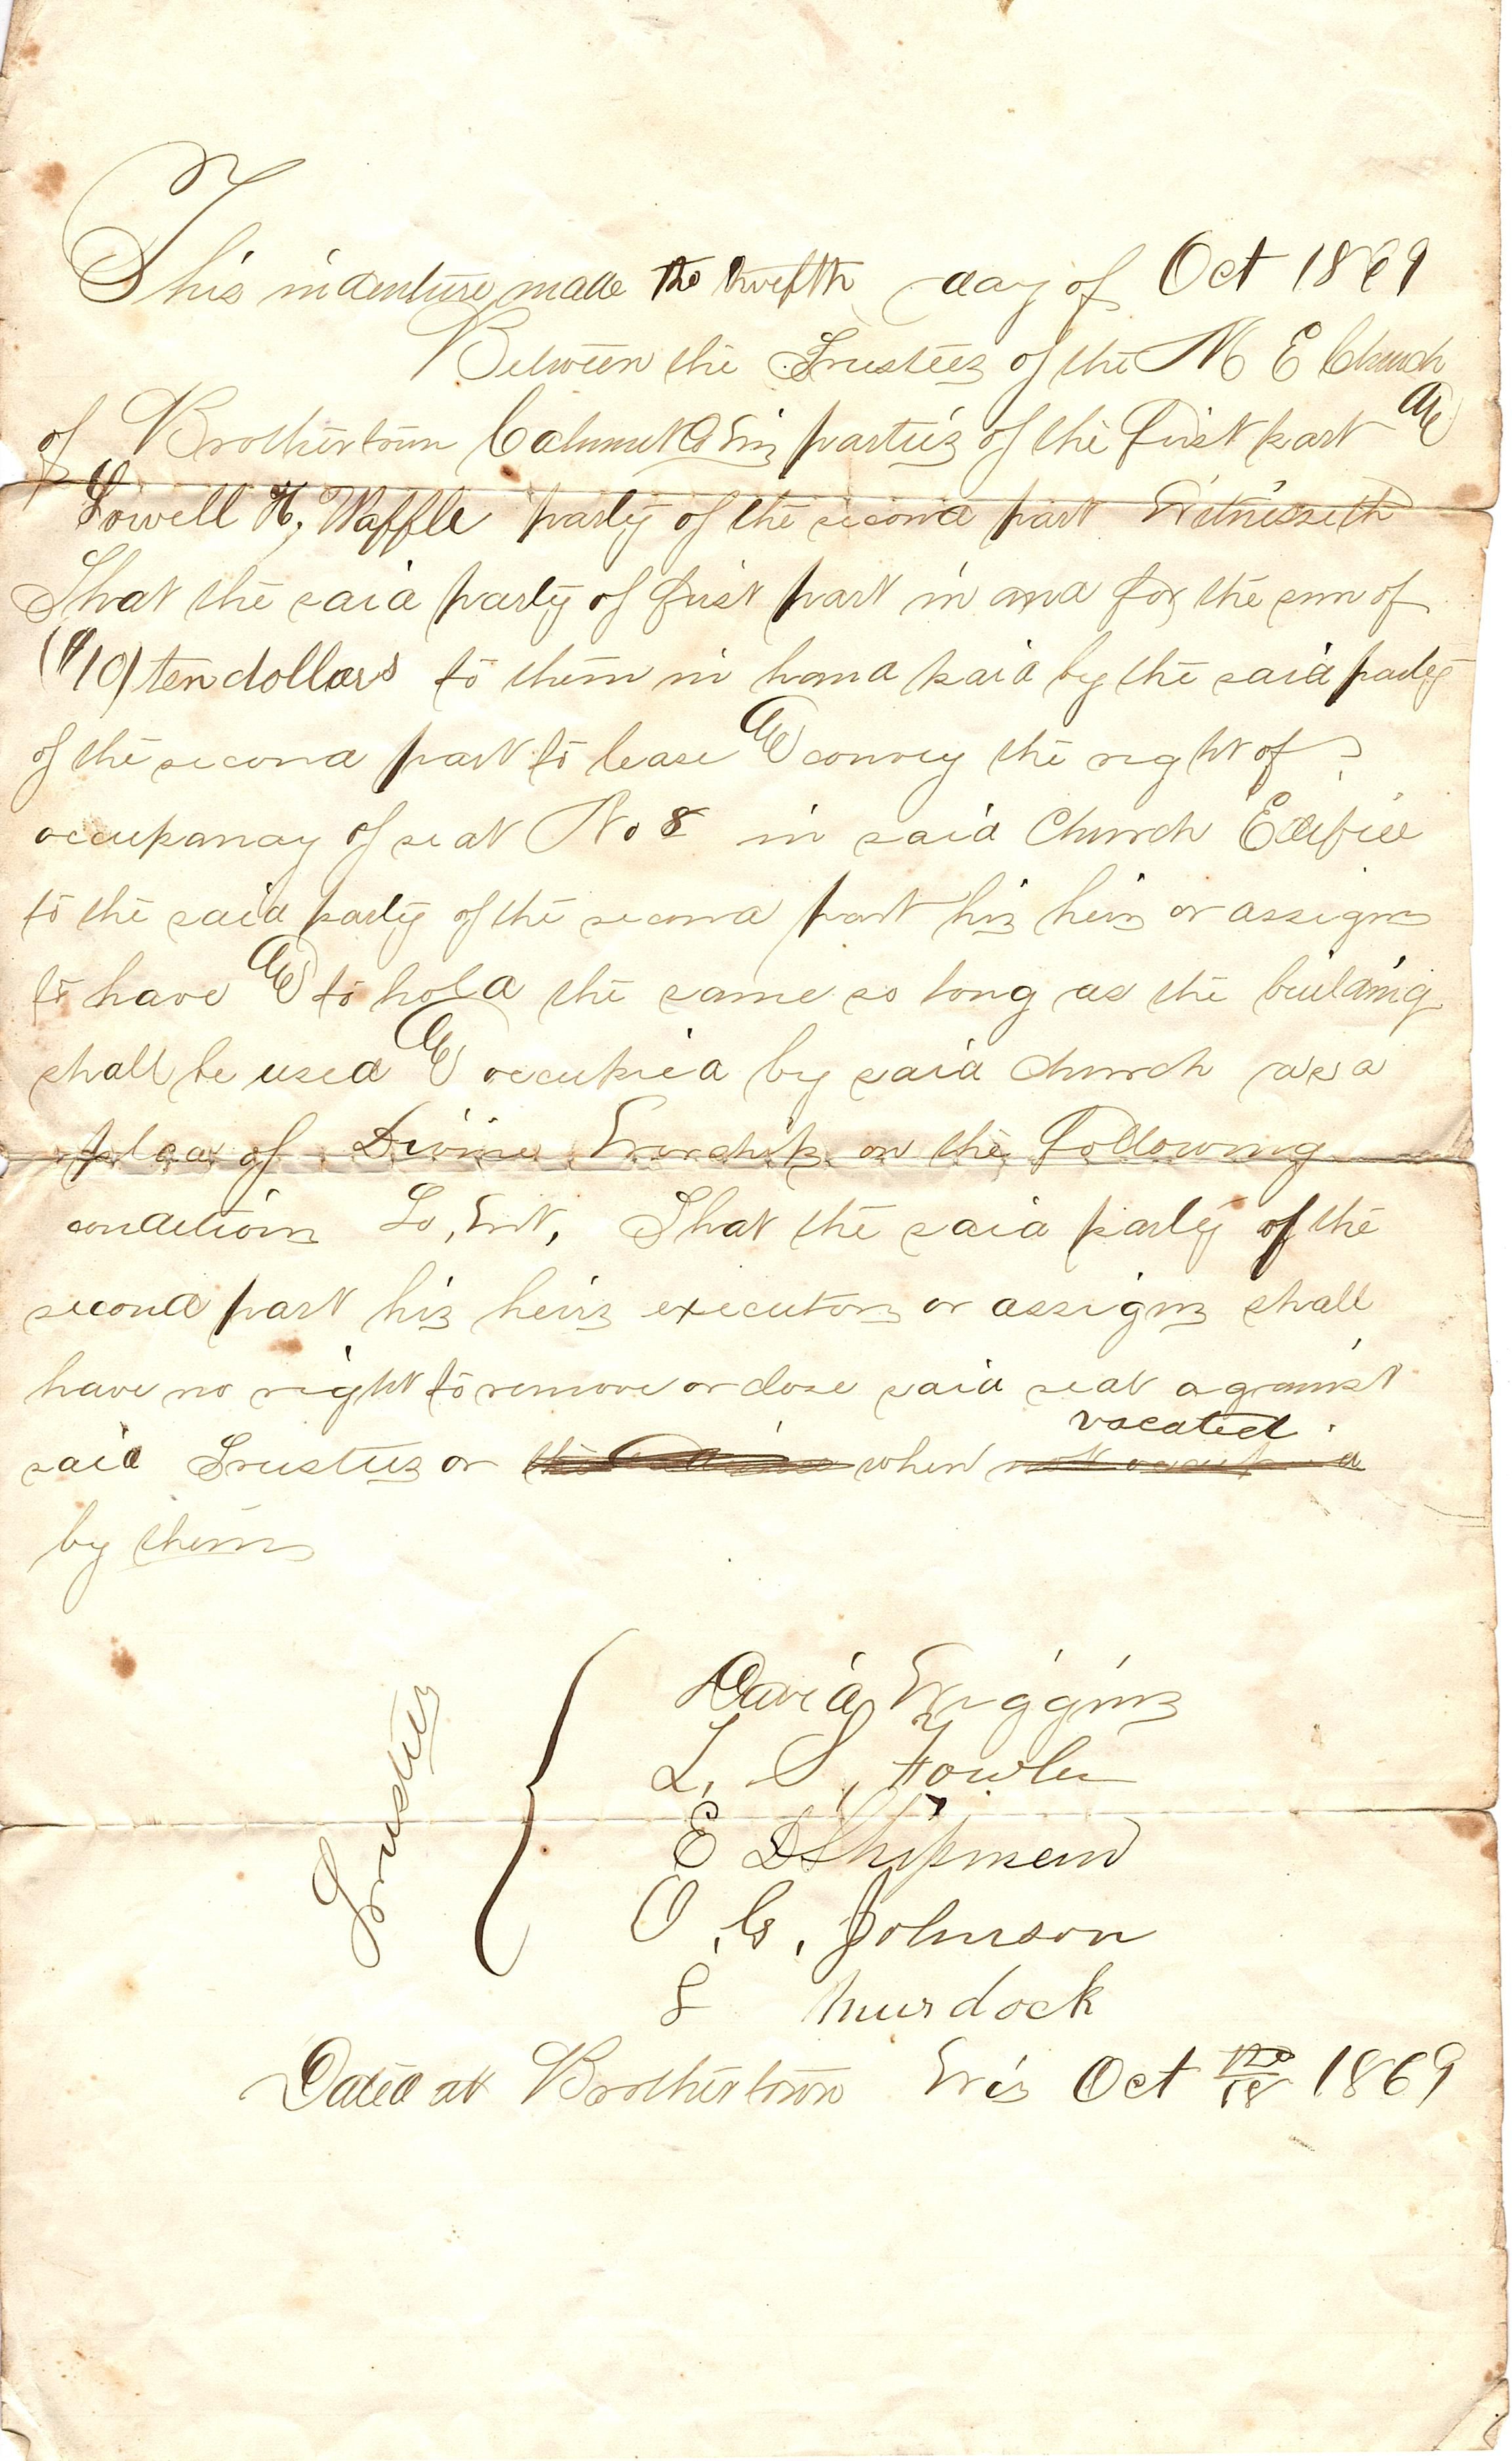 This indenture made the twefth day of Oct 1869
Between the Trustees of the M E Church
of Brothertown Calumet Co Wis parties of the First part &
Lowell H, Waffle party of the second part Witnesseth
That the said party of first part in and for the sum of
($10) ten dollars to them in hand paid by the said party
of the second part to lease & convey the right of
occupancy of seat No 8 in said Church Edifice
to the said party of the second part his heirs or assigns
to have & to hold the same so long as the building
shall be used & occupied by said church as a
place of Divine Worship on the following
conditions To, Wit, That the said party of the
second part his heirs executors or assigns shall
have no right to remove or close said seat against
vacated
said Trustees or when not occupied
by them
Trustees
David Wiggins
L. S. Fowler
E D Shipman
O. G. Johnson
S Murdock
Dated at Brothertown Wis Oct 18 1869